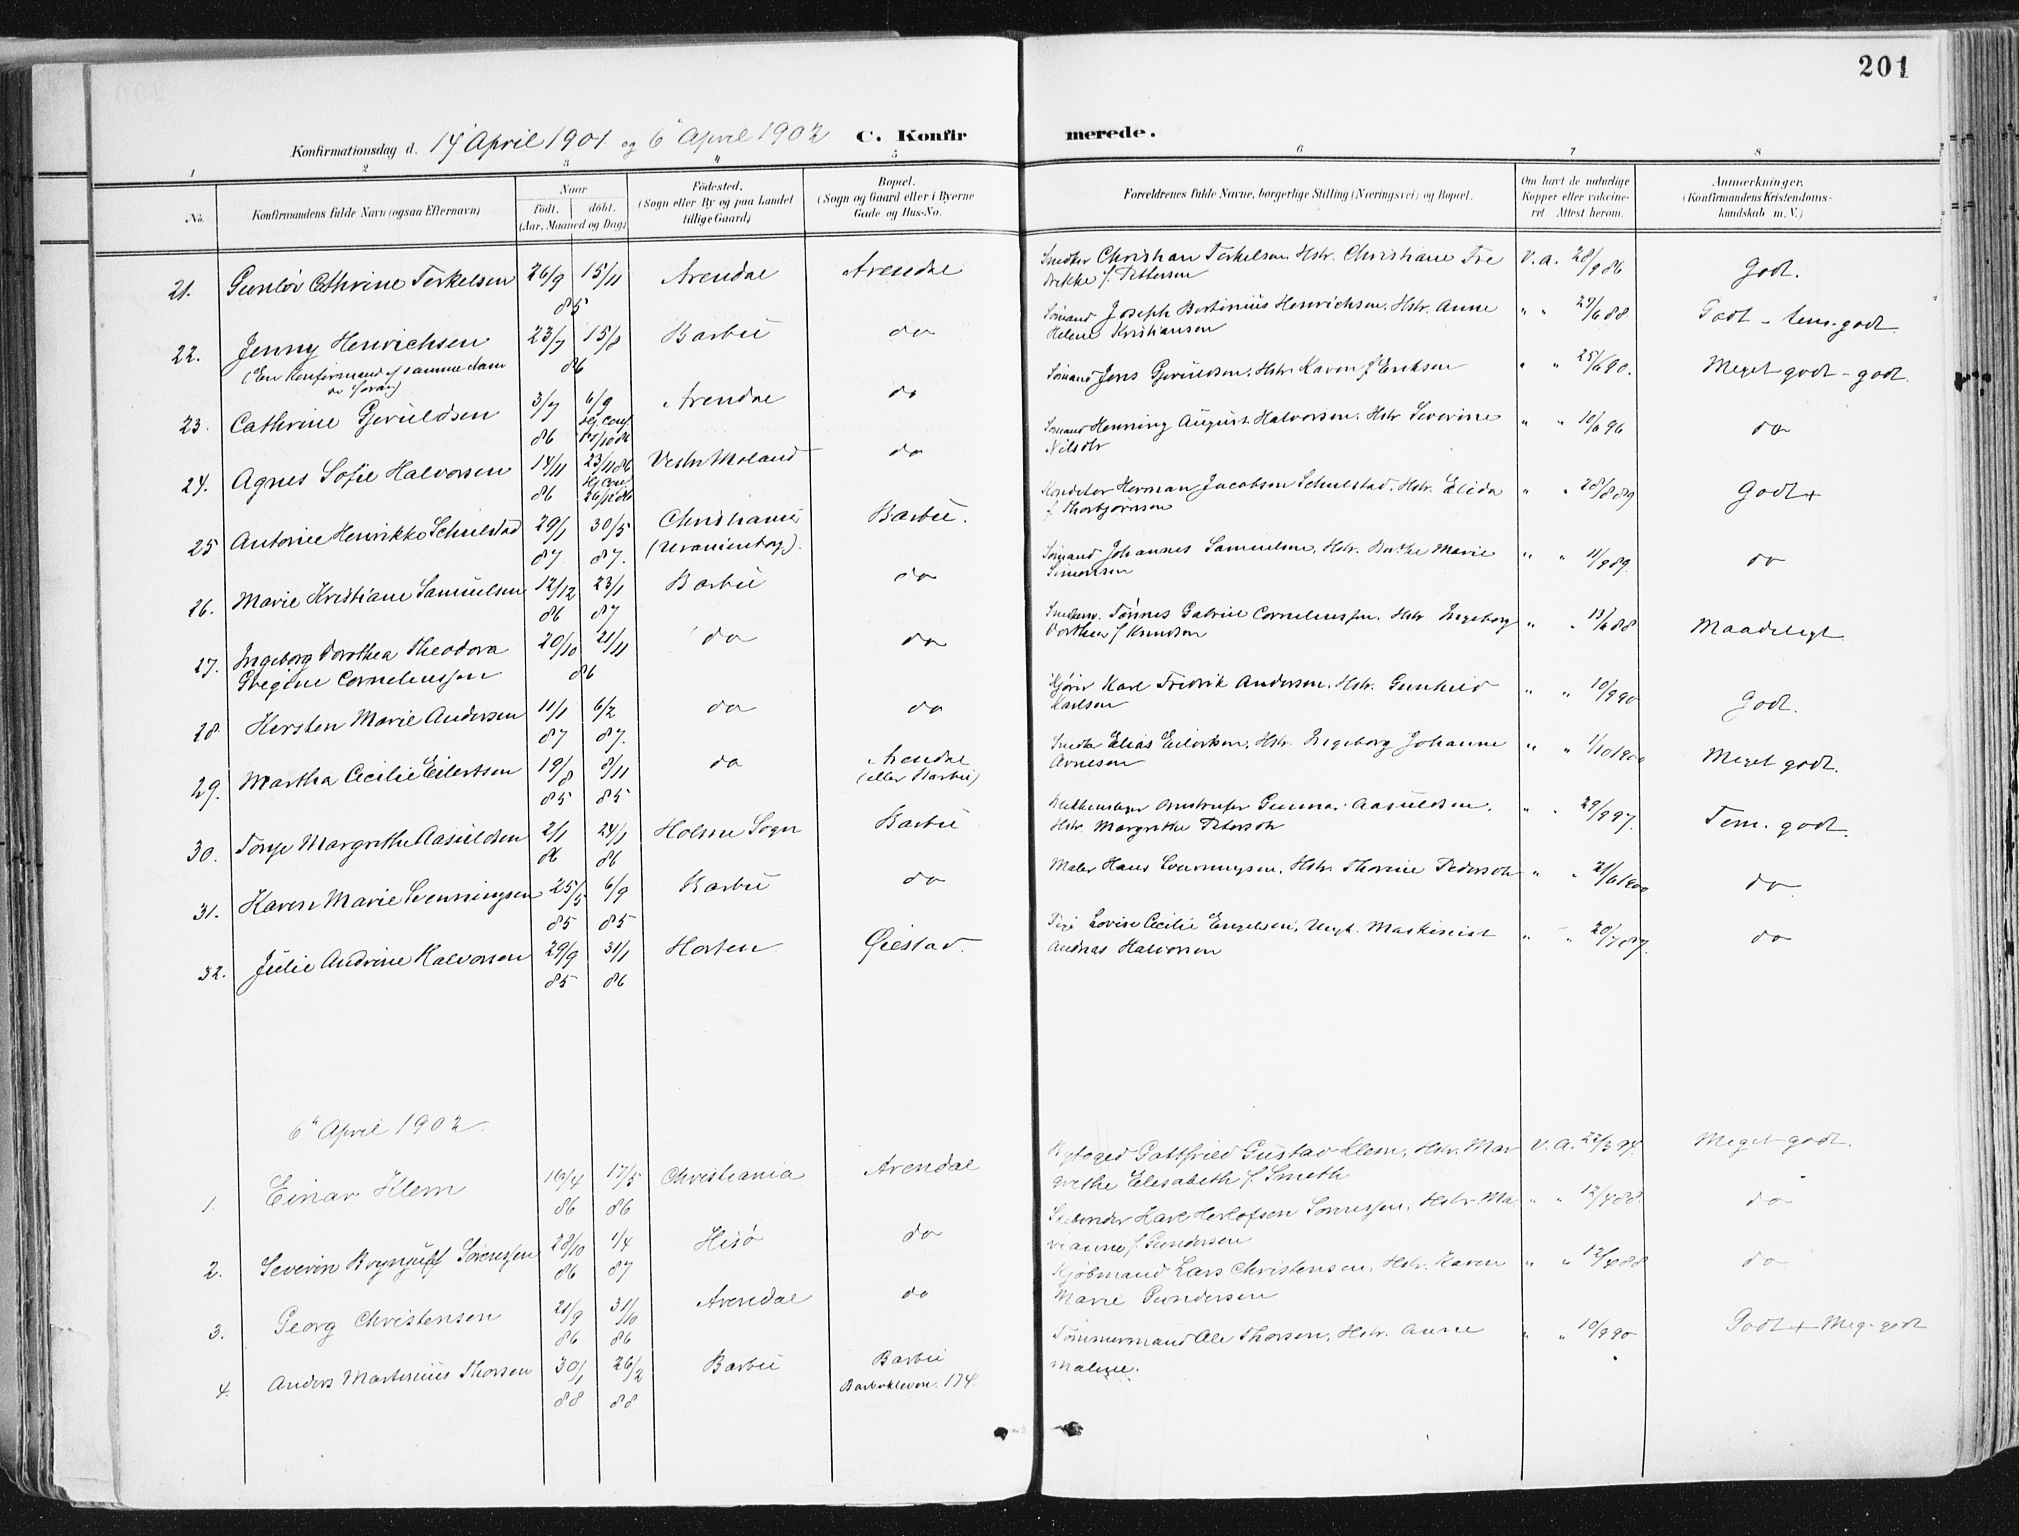 201
Konfirmationsdag d. 14 April 1901 og 6 April 1902 C. Konfirmerede.
1 2 3 4 5 6 7 8
No. Konfirmandens fulde Navn (ogsaa Efternavn) Naar födt. döbt. (Aar, Maaned og Dag) Födested. (Sogn eller By og paa Landet tillige Gaard) Bopæl. (Sogn og Gaard eller i Byerne Gade og Hus-No. Forældrenes fulde Navne, borgerlige Stilling (Næringsvei) og Bopæl. Om havt de naturlige Kopper eller vakcineret Attest herom. Anmærkninger. (Konfirmandens Kristendomskundskab m. V.)
21. Gunlör Cathrine Terkelsen 26/9 15/11 85 Arendal Arendal Christian Terkelsen, Hstr. Christiane Fredrikke f. Pettersen V. a. 28/9 86 Godt.
22. Jenny Henrichsen 23/7 15/8 86 Barbu do Sömand Joseph Bertinius Henrichsen, Hstr. Anne Helene Kristiansen " " 27/6 88 Godt - tem. godt
(En Konfirmand af samme Navn
23. Cathrine Gjeruldsen 3/7 86 6/9 Arendal do Sömand Jens Gjeruldsen, Hstr. Karen f. Eriksen " " 25/6 90. Meget godt - godt.
24. Agnes Sofie Halvorsen 14/11 86 23/11 86 26/12 86 Vestr. Moland do Sömand Henning August Halvorsen, Hstr. Severine Nilsdtr " " 10/6 96 do
25 Antonie Henrikke Schulstad 29/1 87 30/5 87. Christiania (Uranienborg). Barbu. Konditor Herman Jacobsen Schulstad, Hstr. Elida f. Thorbjörnsen " " 28/8 89 Godt +
26. Marie Kristiane Samuelsen 12/12 86 23/1 87 Barbu do Sömand Johannes Samuelsen, Hstr. Berthe Marie Simonsen " " 11/9 89. do
27. Ingeborg Dorothea Theodora Gregine Corneliussen 20/10 21/11 86 do do Tönnes Gabriel Corneliussen, Hstr. Ingeborg Dorthea f. Knudsen " " 13/6 88 Maadeligt
28. Kersten Marie Andersen 11/1 87 6/2 87. do do Karl Fredrik Andersen, Hstr. Gunhild Karlsen " " 10/9 90 Godt.
29. Martha Cecilie Eilertsen 19/8 85 8/11 85 do Arendal (eller Barbu) Elias Eilertsen, Hstr. Ingeborg Johanne Arnesen " " 1/10 1900 Meget godt.
30. Tonje Margrethe Aasuldsen 2/1 86 24/1 86 Holme Sogn Barbu Gunnar Aasuldsen, Hstr. Margrethe Petersdtr " " 29/9 97. Tem. godt.
31. Karen Marie Svenningsen 25/5 85 6/9 85 Barbu do Maler Hans Svenningsen, Hstr. Thorine Pedersdtr " " 21/6 1900 do
32. Julie Andrine Halvorsen 29/9 85 31/1 86 Horten Öiestad. Pige Lovise Cecilie Engelsen, Ungk. Maskinist Andreas Halvorsen " " 20/7 87. do
6te April 1902.
1. Einar Klem 16/4 86 17/5 86 Christiania Arendal Byfoged Gottfried Gustav Klem, Hstr. Margrethe Elisabeth f. Smith V. a. 22/3 94. Meget godt.
2. Severin Brynjulf Sörenssen 28/10 86 1/4 87 Hisö do Karl Herlofsen Sörenssen, Hstr. Marianne f. Gundersen " " 12/4 88 do
3. Georg Christensen 21/9 86 31/10 86 Arendal do Kjöbmand Lars Christensen, Hstr. Karen Marie Gundersen " " 12/4 88 do
4. Anders Martinius Thorsen 30/1 88 26/2 88 Barbu Barbu Barbukleven. 174. Tömmermand Ole Thorsen, Hstr. Anne Maline. " " 10/9 90 Godt + Meg. godt